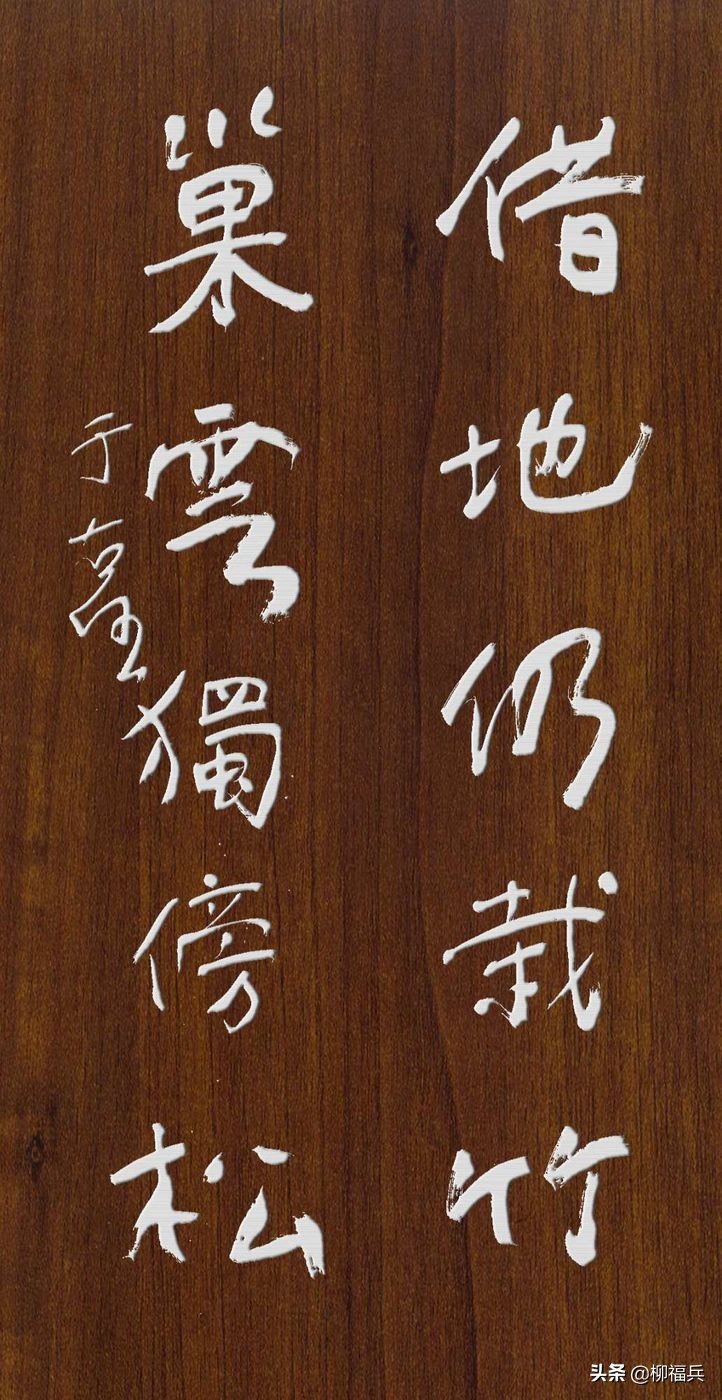 借地仍栽竹
巢雲獨傍松
于立羣
头条 @柳福兵